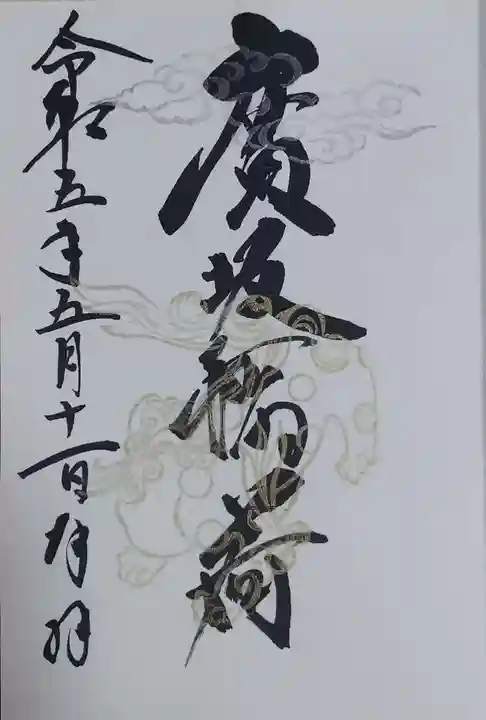 廣坂稲荷
令和五年五月十一日拝拝